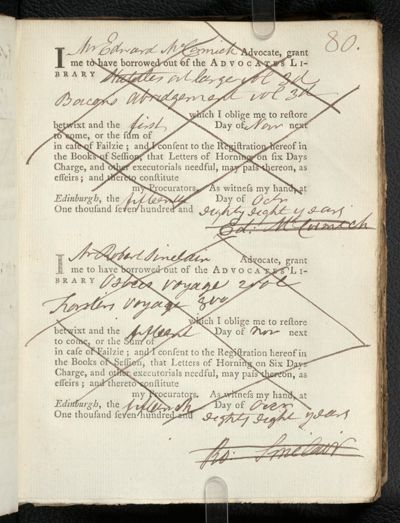 80.
I Mr Edward McCormick Advocate, grant
me to have borrowed out of the ADVOCATES LI-
BRARY Statutes at large vol 3d
Bacons Abridgement vol 3d
which I oblige me to reſtore
betwixt and the first Day of Nov next
to come, or the ſum of
in caſe of Failzie; and I conſent to the Regiſtration hereof in
the Books of Seſſion, that Letters of Horning on ſix Days
Charge, and other executorials needful, may paſs thereon, as
effeirs; and thereto conſtitute
my Procurators. As witneſs my hand, at
Edinburgh, the fifteenth Day of Octr
One thouſand ſeven hundred and eighty eight years
Ed: McCormick
I Mr Robert Sinclair Advocate, grant
me to have borrowed out of the ADVOCATES LI-
BRARY voyage 2 vol
voyage 3 vo
which I oblige me to reſtore
betwixt and the fifteent Day of Nov next
to come, or the Sum of
in caſe of Failzie; and I conſent to the Regiſtration hereof in
the Books of Seſſion, that Letters of Horning on Six Days
Charge, and other executorials needful, may paſs thereon, as
effeirs; and thereto conſtitute
my Procurators. As witneſs my hand, at
Edinburgh, the fifteenth Day of Octr
One thouſand ſeven hundred and eighty eight years
Ro. Sinclair